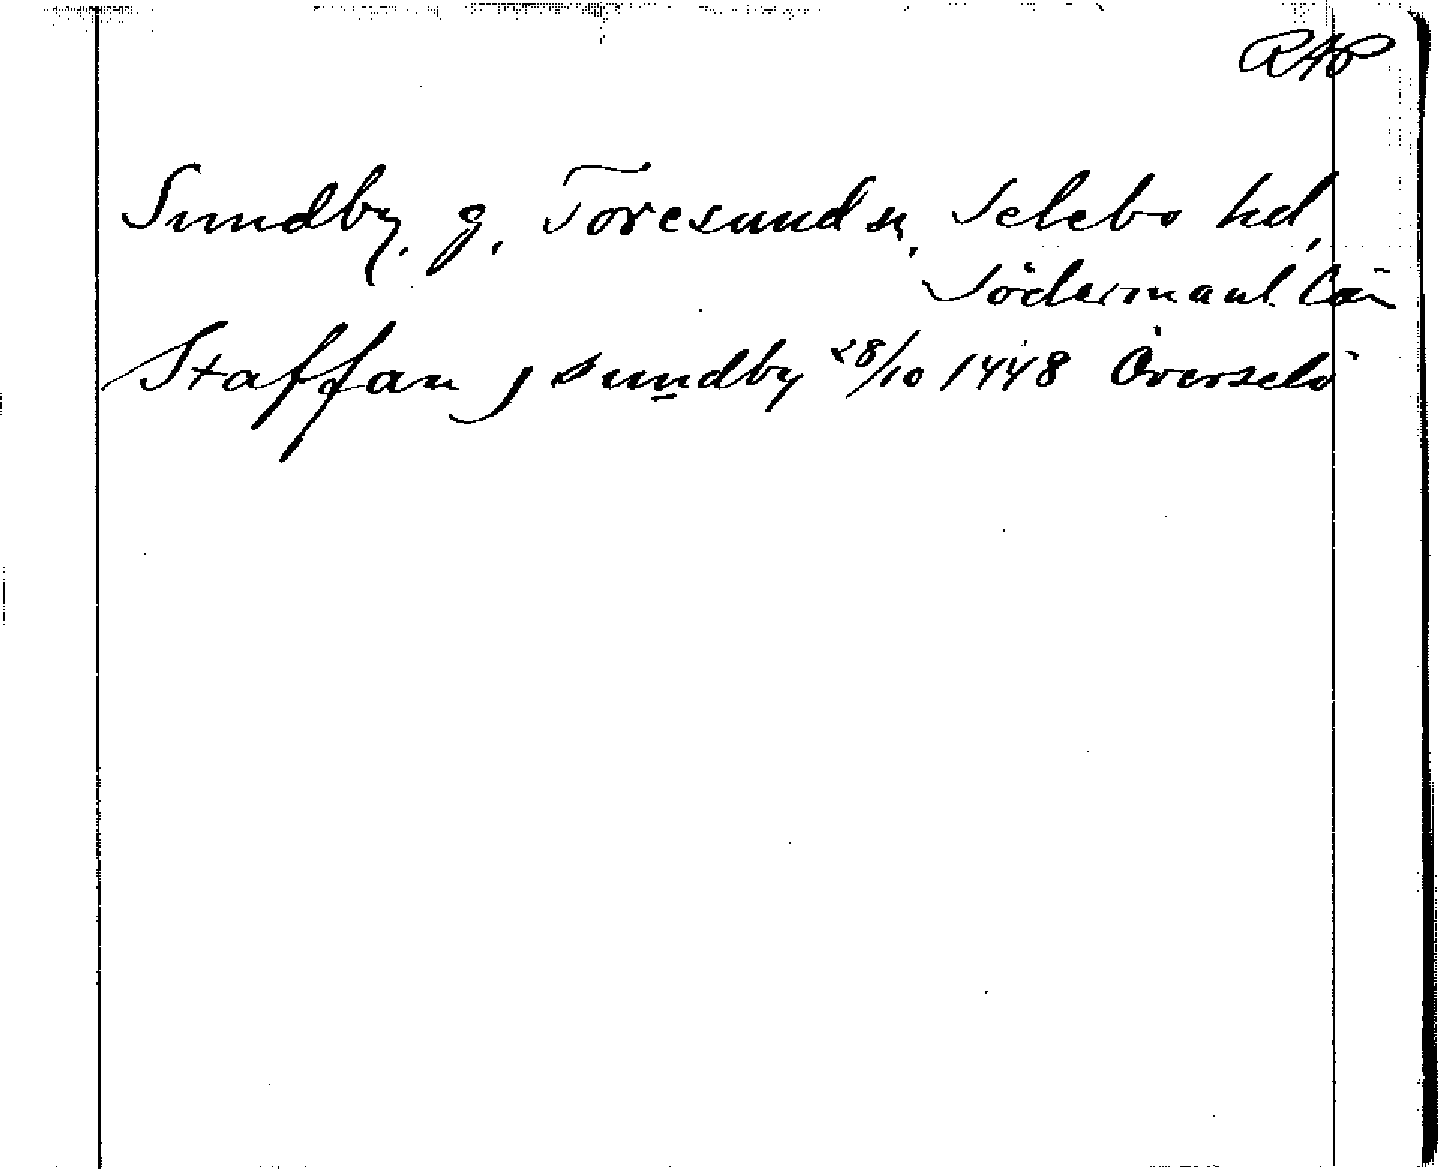 RAP
Sundby, g, Toresund sn, Selebo hd,
Södermanl län
Staffan j sundby 28/10 1448 Överselö